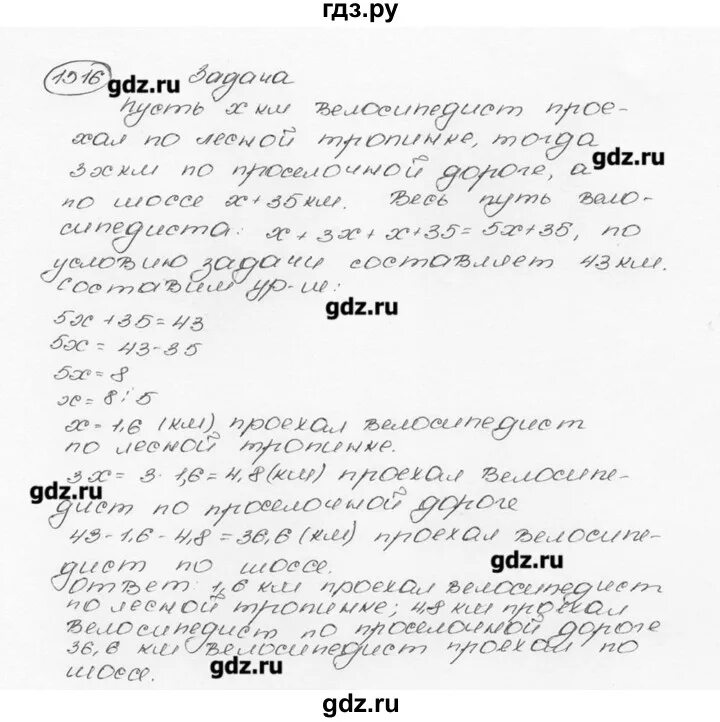 гдз.ру
1516 gdz.ru Задача
Пусть x км велосипедист прое-
хал по лесной тропинке, тогда
3x км по проселочной дороге, а gdz.ru
по шоссе x+35 км. Весь путь вело-
сипедиста: x + 3x + x + 35 = 5x+35, по
условию задачи составляет 43 км.
Составим ур-ие: gdz.ru
5x + 35 = 43
5x = 43-35
5x = 8
x = 8:5
x = 1,6 (км) проехал велосипедист
по лесной тропинке.
3x = 3 · 1,6 = 4,8 (км) проехал велосипе-
gdz.ru
дист по проселочной дороге
43-1,6 - 4,8 = 36,6 (км) проехал велосипе-
дист по шоссе. gdz.ru
Ответ: 1,6 км проехал велосипедист
по лесной тропинке; 4,8 км проехал
велосипедист по проселочной дороге
36,6 км велосипедист проехал по
шоссе. gdz.ru
gdz.ru